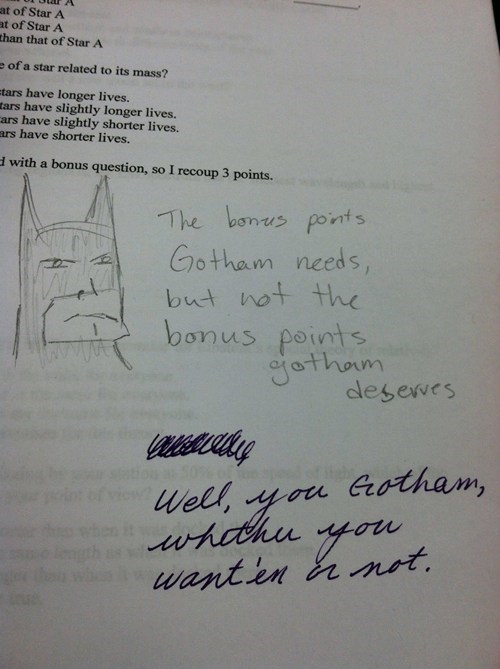 at of Star A
at of Star A
than that of Star A
e of a star related to its mass?
tars have longer lives.
tars have slightly longer lives.
ars have slightly shorter lives.
ars have shorter lives.
d with a bonus question, so I recoup 3 points.
The bonus points
Gotham needs,
but not the
bonus points
gotham
deserves
Well, you Gotham,
whether you
want'en or not.